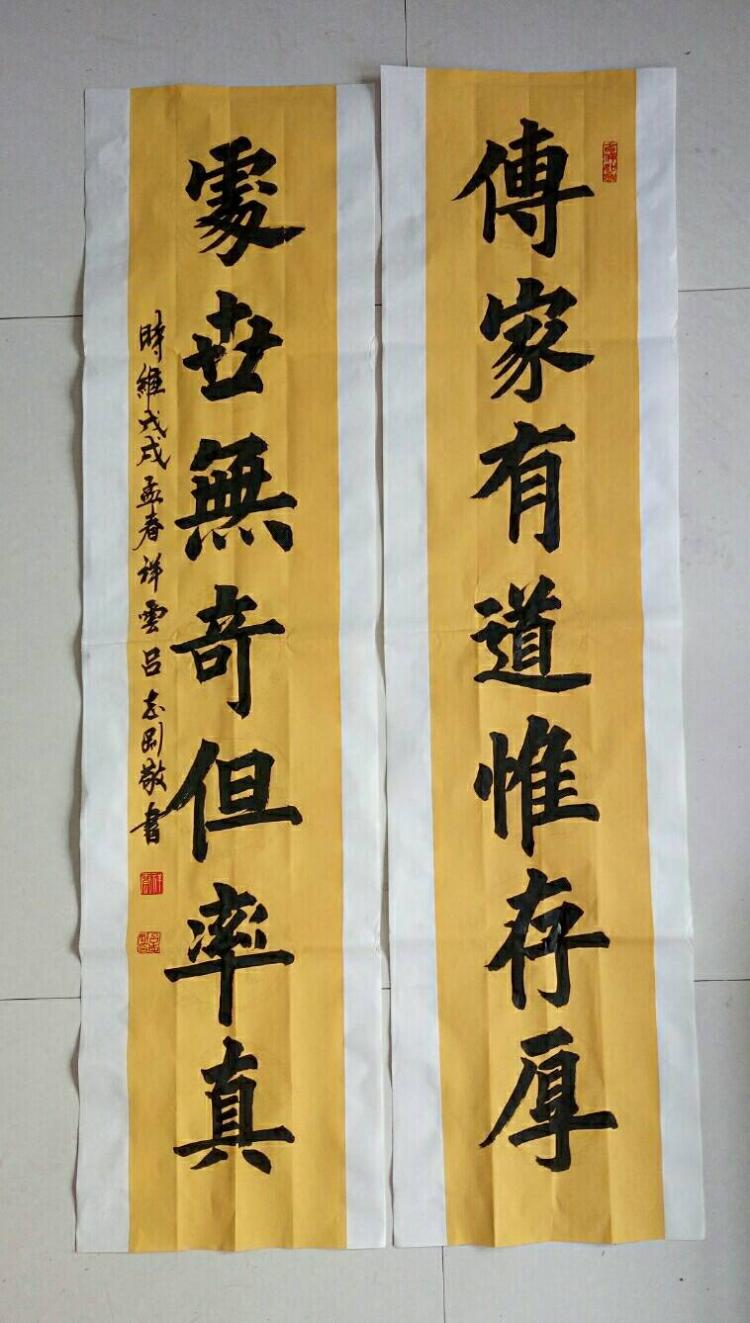 傳家有道惟存厚
處世無奇但率真
時維戊戌孟春祥雲呂志剛敬書